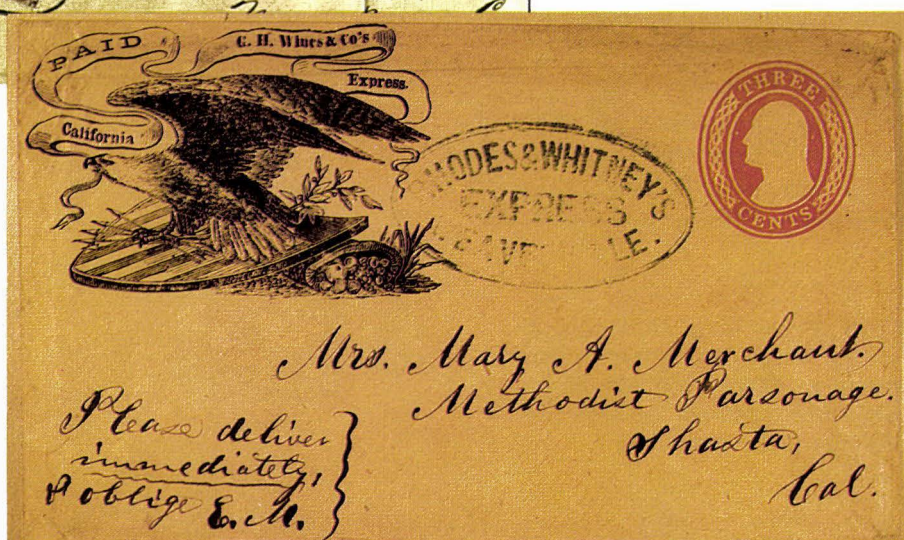 PAID
G. H. Wines & Co's
Express.
California
RHODES & WHITNEY'S
EXPRESS
THREE
CENTS
Mrs. Mary A. Merchant.
Methodist Parsonage.
Shasta,
Cal.
Please deliver
immediately,
& oblige E. M.